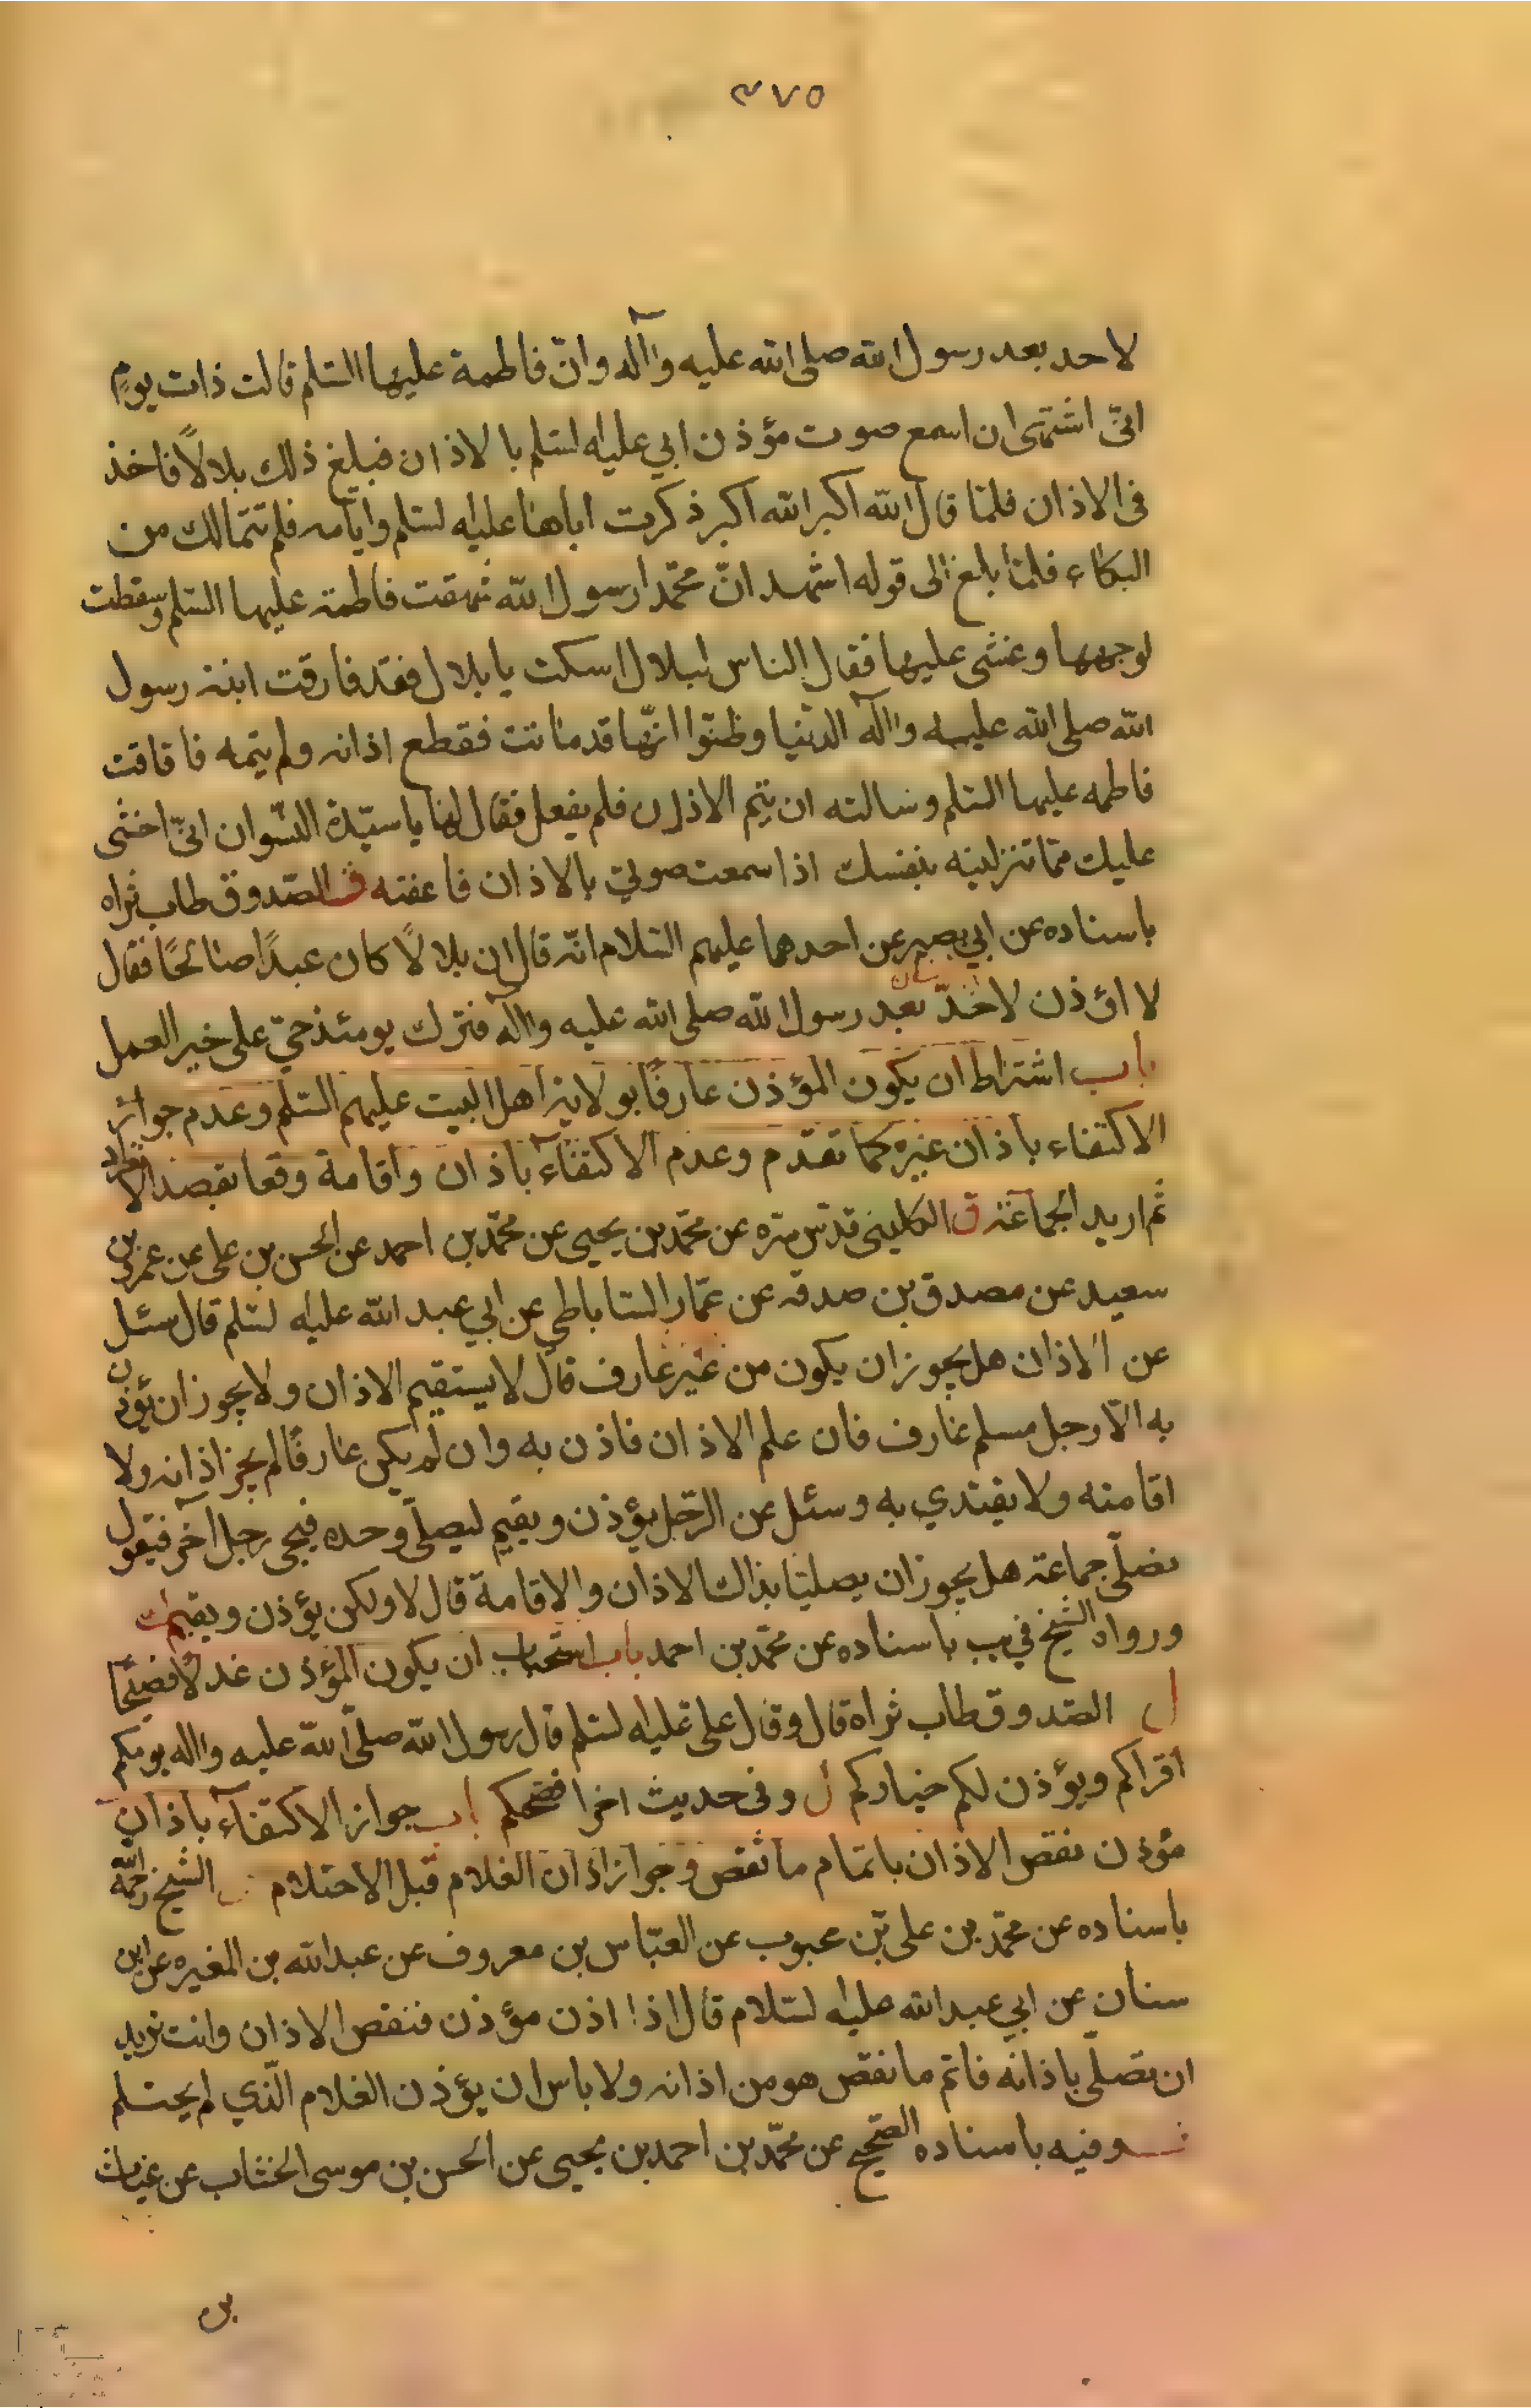 ٣٧٥
لاحد بعد رسول الله صلى الله عليه وآله وانّ فاطمة عليها السّلم قالت ذات يومٍ
انّى اشتهى ان اسمع صوت مؤذن ابي عليه السلم بالاذان فبلغ ذلك بلالاً فاخذ
فى الاذان فلمّا قال الله اكبر الله اكبر ذكرت اباها عليه السلم وايّامه فلم تتمالك من
البكاء فلمّا بلغ الى قوله اشهد انّ محمّدا رسول الله شهقت فاطمة عليها السّلم وسقطت
لوجهها وغشى عليها فقال الناس لبلال اسكت يا بلال فقد فارقت ابنة رسول
الله صلى الله عليه وآله الدّنيا وظنّوا انّها قد ماتت فقطع اذانه ولم يتمه فافاقت
فاطمه عليها السّلم وسالته ان يتم الاذان فلم يفعل فقال لها يا سيّدة النّسوان انّى اخشى
عليك ممّا تنزلينه بنفسك اذا سمعت صوتي بالاذان فاعفته ف الصّدوق طاب ثراه
باسناده عن ابي بصير عن احدهما عليهم السّلام انّه قال ان بلالاً كان عبدًا صالحًا فقال
لا اؤذن لاحد بعد رسول الله صلى الله عليه وآله فترك يومئذ حيّ على خير العمل
باب اشتراط ان يكون المؤذن عارفًا بولاية اهل البيت عليهم السّلم وعدم جواز
الاكتفاء باذان غيره كما تقدّم وعدم الاكتفاء باذان واقامة وقعا بقصد الانفراد
ثم اريد الجماعة ق الكليني قدّس سرّه عن محمّد بن يحيى عن محمّد بن احمد عن الحسن بن على عن عمرو بن
سعيد عن مصدق بن صدقه عن عمّار السّاباطي عن ابي عبد الله عليه السلم قال سئل
عن الاذان هل يجوز ان يكون من غير عارف قال لا يستقيم الاذان ولا يجوز ان يؤذن
به الّا رجل مسلم عارف فان علم الاذان فاذن به وان لم يكن عارفًا لم يجز اذانه ولا
اقامته ولا يقتدي به وسئل عن الرّجل يؤذن ويقيم ليصلّى وحده فيجى رجل آخر فيقول
نصلّى جماعة هل يجوز ان يصليّا بذلك الاذان والاقامة قال لا ولكن يؤذن ويقيم
ورواه الشّيخ في يب باسناده عن محمّد بن احمد باب استحباب ان يكون المؤذن عدلاً فصيحًا
ل الصّدوق طاب ثراه قال وقال على عليه السلم قال رسول الله صلّى الله عليه واله يومّكم
اقراكم ويؤذن لكم خياركم ل وفى حديث اخر افصحكم باب جواز الاكتفآء باذان
مؤذن نقص الاذان باتمام ما نقص وجواز اذان الغلام قبل الاحتلام الشّيخ رحمه الله
باسناده عن محمّد بن على بن محبوب عن العبّاس بن معروف عن عبد الله بن المغيره عن ابن
سنان عن ابي عبد الله عليه السّلام قال اذا اذن مؤذن فنقص الاذان وانت تريد
ان تصلّى باذانه فاتم ما نقص هو من اذانه ولا باس ان يؤذن الغلام الّذي لم يحتلم
وفيه باسناده الصّحيح عن محمّد بن احمد بن يحيى عن الحسن بن موسى الخشّاب عن غياث
بن